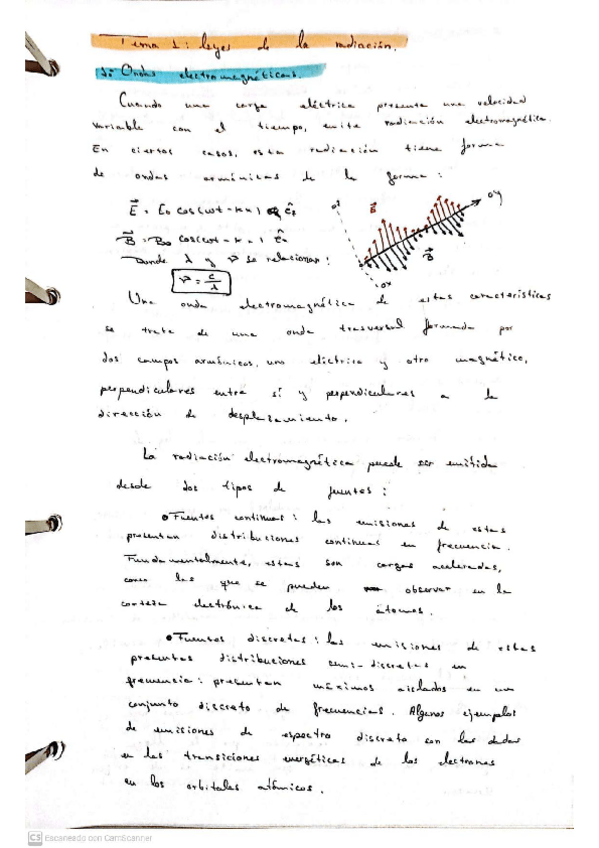 Tema 1: leyes de la radiación.
1: Ondas electromagnéticas.
Cuando una carga eléctrica presenta una velocidad
variable con el tiempo, emite radiación electromagnética.
En ciertos casos, esta radiación tiene forma
de ondas armónicas de la forma:
E⃗ = E₀ cos(ωt - kx)
B⃗ = B₀ cos(ωt - kx)
Donde λ y ν se relacionan:
ν = c/λ
OZ
E⃗
OY
B⃗
OX
Una onda electromagnética de estas características
se trata de una onda trasversal formada por
dos campos armónicos, uno eléctrico y otro magnético,
perpendiculares entre sí y perpendiculares a la
dirección de desplazamiento.
La radiación electromagnética puede ser emitida
desde dos tipos de fuentes:
• Fuentes continuas: las emisiones de estas
presentan distribuciones continuas en frecuencia.
Fundamentalmente, estas son cargas aceleradas,
como las que se pueden observar en la
corteza electrónica de los átomos.
• Fuentes discretas: las emisiones de estas
presentas distribuciones cuasi-discretas en
frecuencia: presentan máximos aislados en un
conjunto discreto de frecuencias. Algunos ejemplos
de emisiones de espectro discreto son las dadas
en las transiciones energéticas de los electrones
en los orbitales atómicos.
CS Escaneado con CamScanner